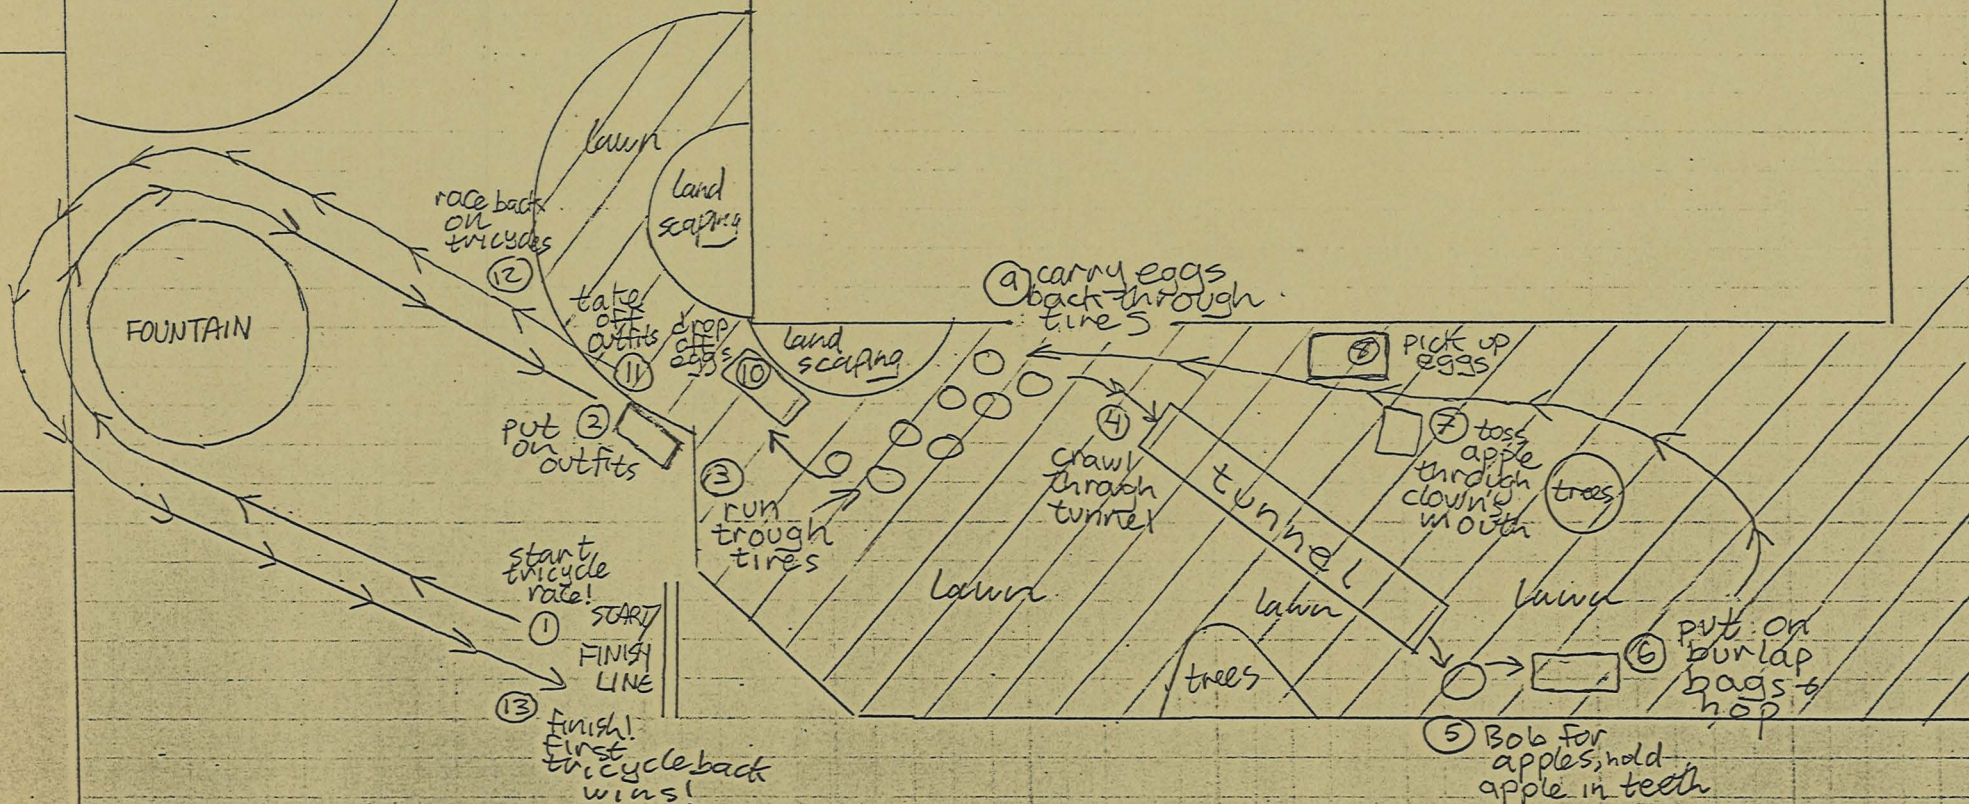 lawn
land
scaping
race back
on
tricycles
12
take
off
outfits
11
drop
off
eggs
10
land
scaping
9 carry eggs
back through
tires
8 pick up
eggs
FOUNTAIN
put 2
on
outfits
3
run
trough
tires
4
crawl
through
tunnel
tunnel
7 toss
apple
through
clown's
mouth
trees
start
tricycle
race!
1 START
FINISH
LINE
13
finish!
first
tricycle back
wins!
lawn
lawn
lawn
trees
6 put on
burlap
bags +
hop
5 Bob for
apples, hold
apple in teeth